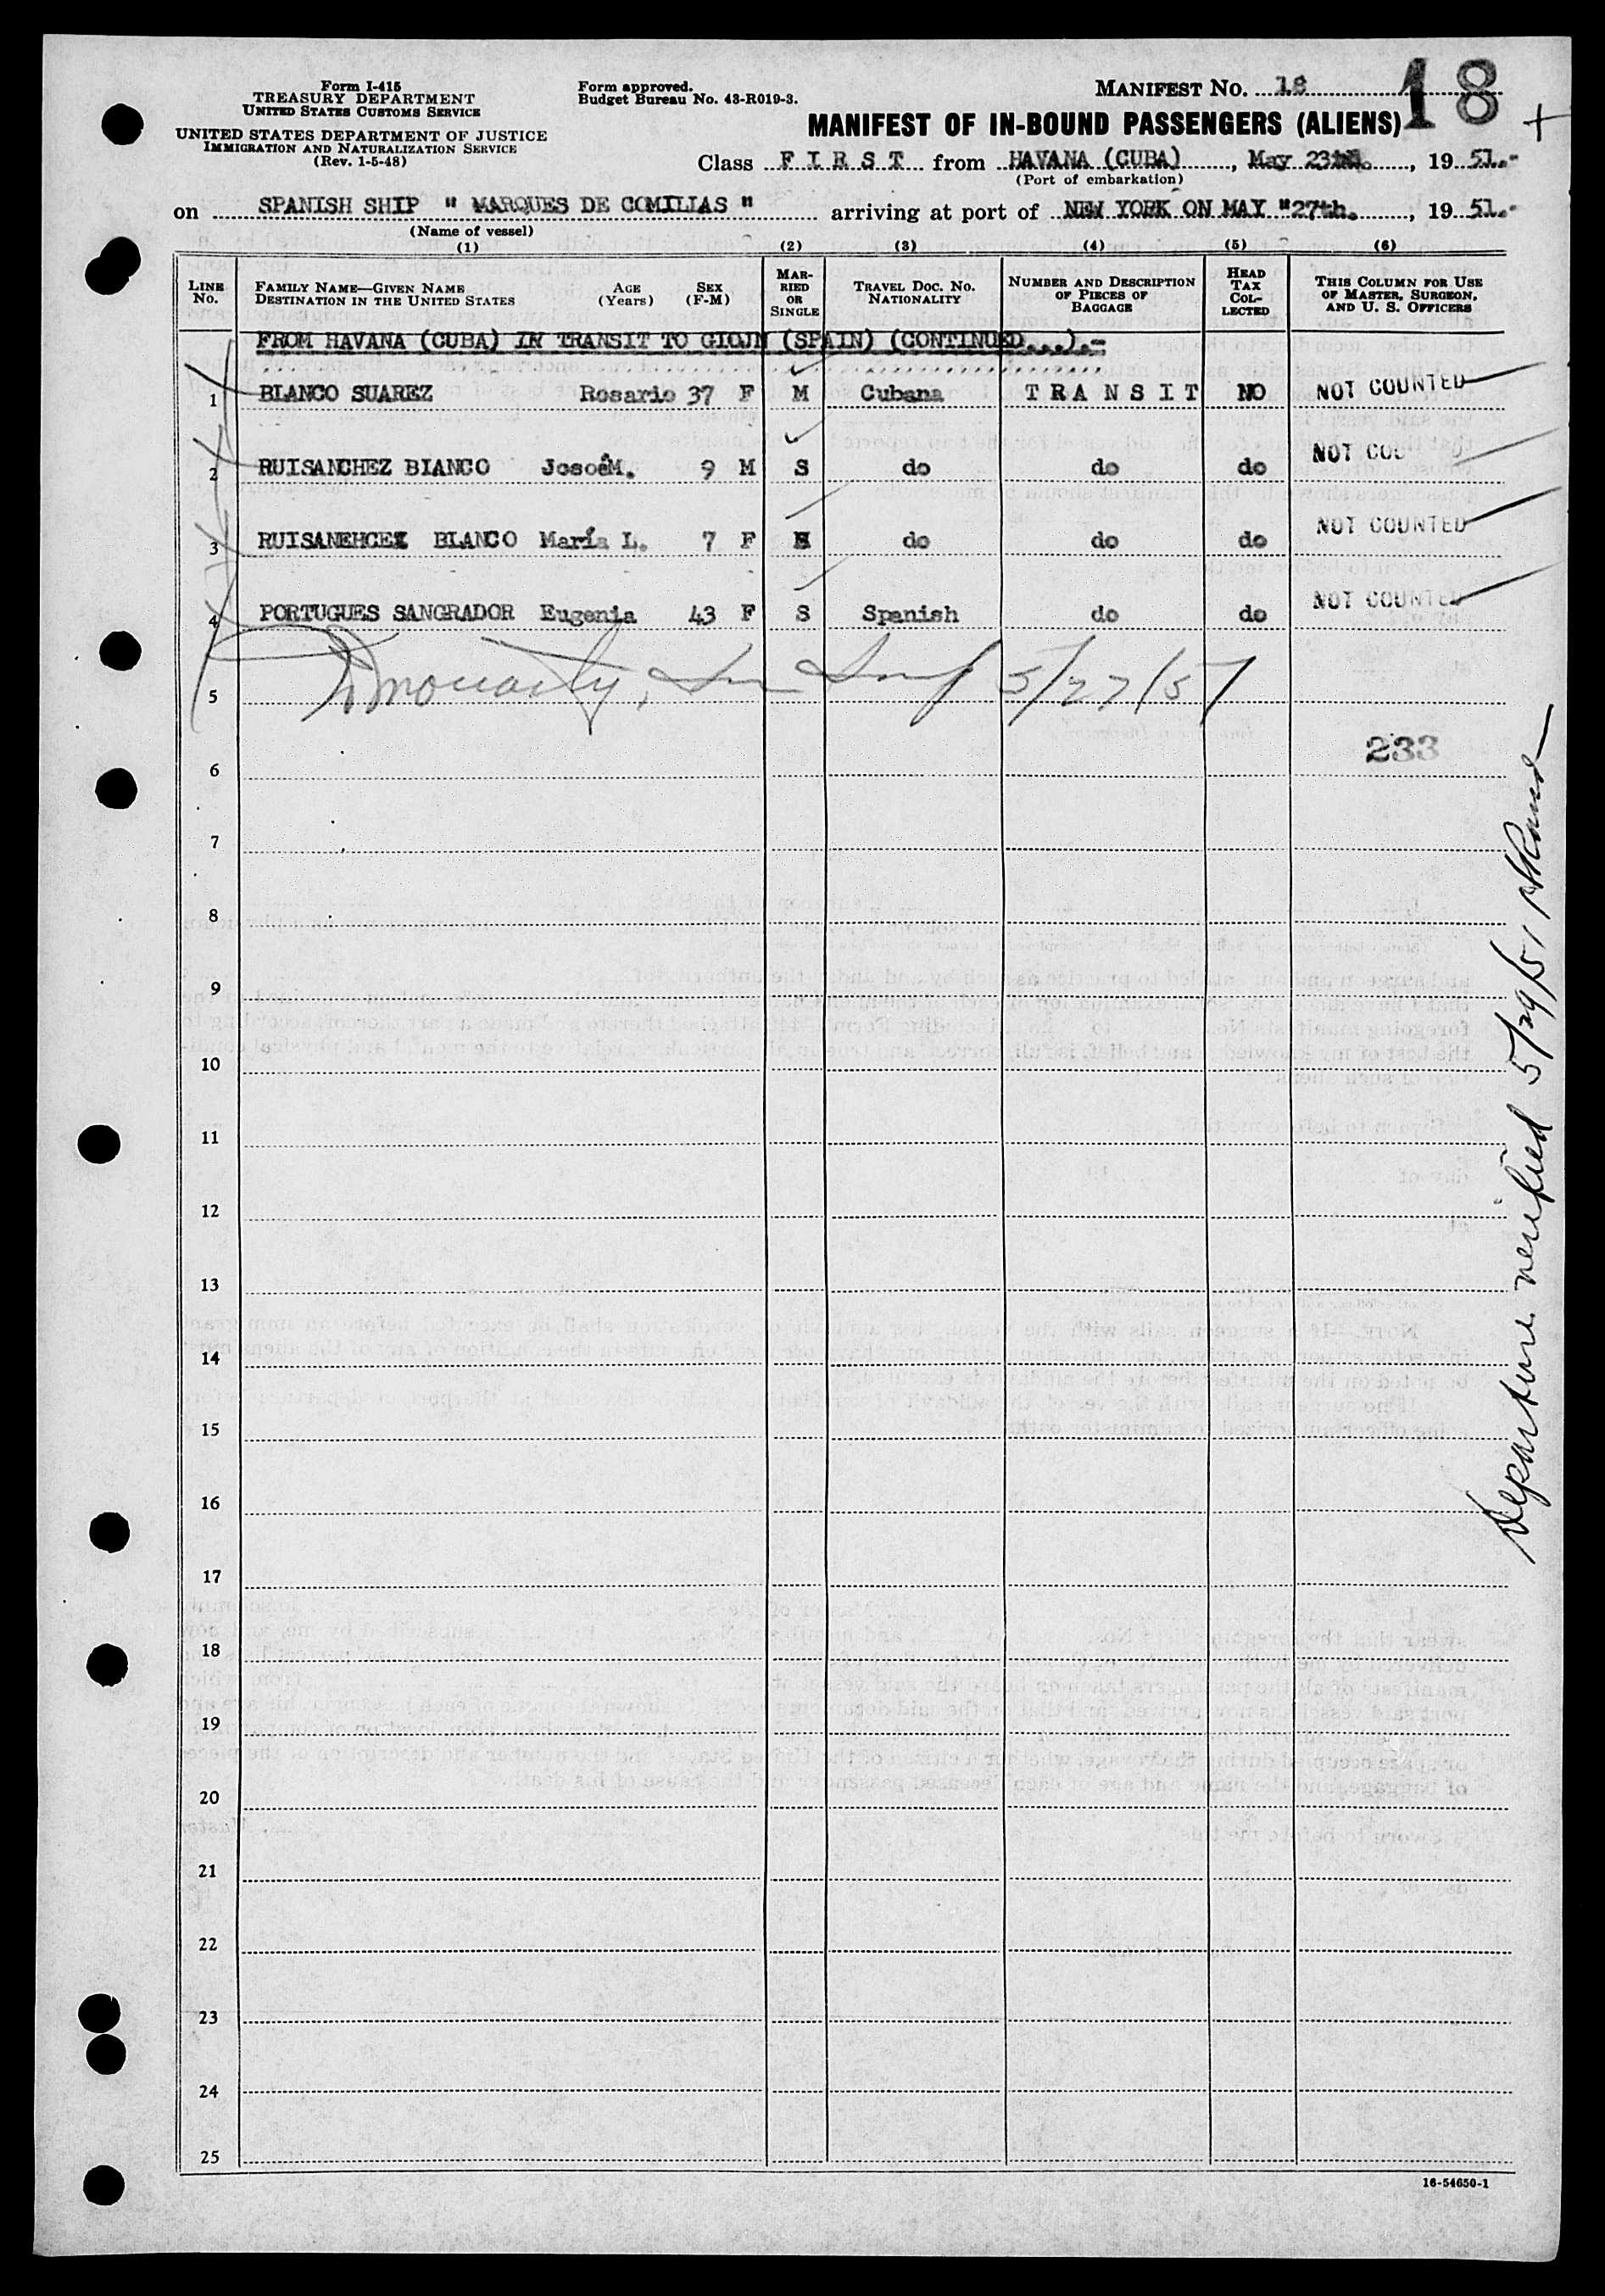 Form I-415
TREASURY DEPARTMENT
UNITED STATES CUSTOMS SERVICE
UNITED STATES DEPARTMENT OF JUSTICE
IMMIGRATION AND NATURALIZATION SERVICE
(Rev. 1-5-48)
Form approved.
Budget Bureau No. 43-R019-3.
MANIFEST No. 18
18
+
MANIFEST OF IN-BOUND PASSENGERS (ALIENS)
Class F I R S T from HAVANA (CUBA), May 23, 19 51.-
(Port of embarkation)
on SPANISH SHIP " MARQUES DE COMILIAS " arriving at port of NEW YORK ON MAY "27th., 19 51.-
(Name of vessel)
(1) (2) (3) (4) (5) (6)
LINE No.
FAMILY NAME—GIVEN NAME
DESTINATION IN THE UNITED STATES
AGE (Years)
SEX (F-M)
MARRIED OR SINGLE
TRAVEL DOC. NO. NATIONALITY
NUMBER AND DESCRIPTION OF PIECES OF BAGGAGE
HEAD TAX COLLECTED
THIS COLUMN FOR USE OF MASTER, SURGEON, AND U. S. OFFICERS
FROM HAVANA (CUBA) IN TRANSIT TO GIOJN (SPAIN) (CONTINUED...).-
1 BLANCO SUAREZ Rosario 37 F M Cubana T R A N S I T NO NOT COUNTED
2 RUISANCHEZ BIANCO Josoé M. 9 M S do do do NOT COU D
3 RUISANEHCEZ BLANCO María L. 7 F do do do NOT COUNTED
4 PORTUGUES SANGRADOR Eugenia 43 F S Spanish do do NOT COUNTED
5 5/27/51
6 233
7
8
9
10
11
12
13
14
15
16
17
18
19
20
21
22
23
24
25
Departure verified 5/29/51
16-54650-1